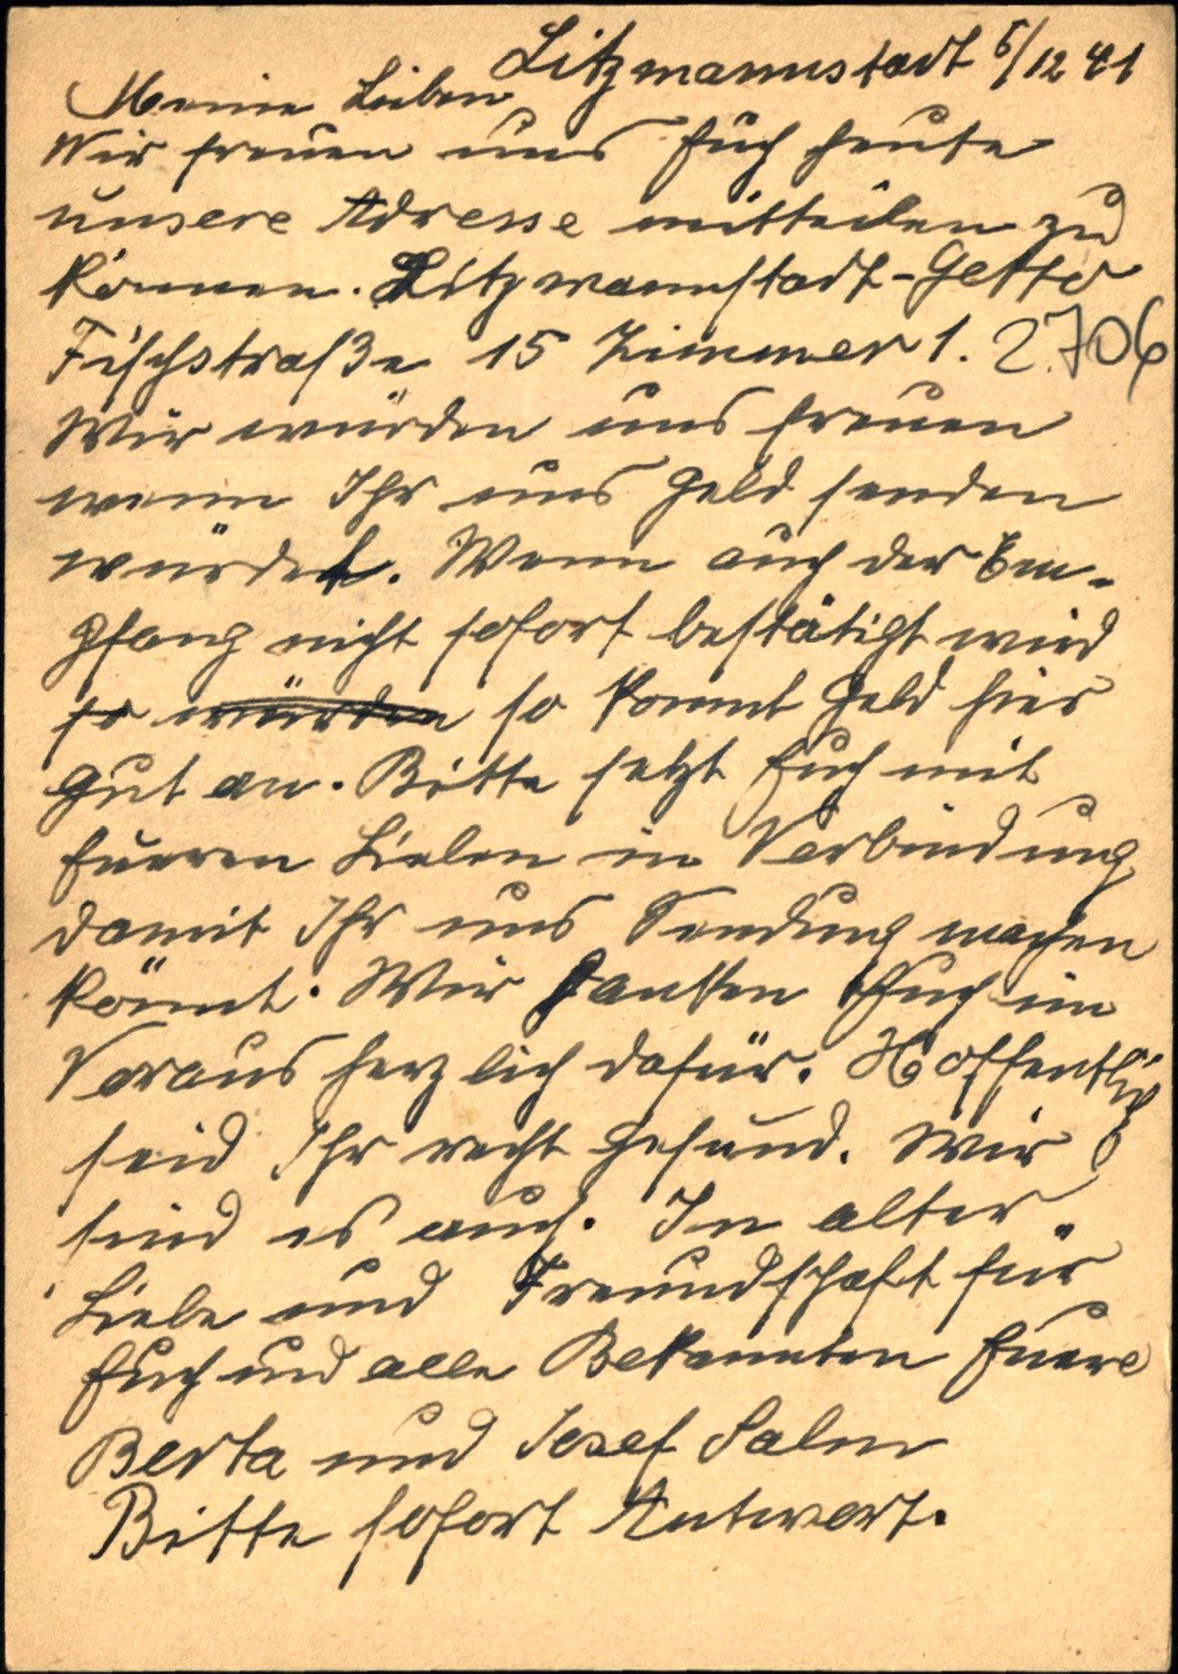 Litzmannstadt 5/12 41
Meine Lieben
Wir freuen uns Euch heute
unsere Adresse mitteilen zu
können. Litzmannstadt-Getto
Fischstraße 15 Zimmer 1. 2706
Wir würden uns freuen
wenn Ihr uns Geld senden
würdet. Wenn auch der Em-
pfang nicht sofort bestätigt wird
so würden so kommt Geld hier
gut an. Bitte setzt Euch mit
Eueren Lieben in Verbindung
damit Ihr uns Sendung machen
könnt. Wir danken Euch im
Voraus herzlich dafür. Hoffentlich
seid Ihr recht gesund. Wir
sind es auch. In alter
Liebe und Freundschaft für
Euch und alle Bekannten Euere
Berta und Josef Salm
Bitte sofort Antwort.